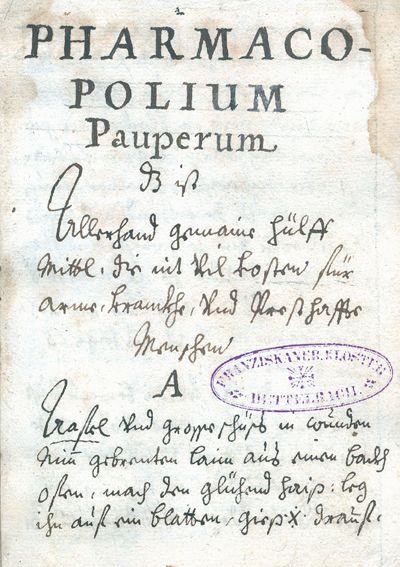 PHARMACO-
POLIUM
Pauperum
dz ist
Allerhand gemaine hülff
Mittl, die nit vil kosten für
arme, krankhe, Und Presthaffte
Menschen
FRANZISKANER-KLOSTER
DETTELBACH.
A
Und grosse in wunden
Nim gebrenten laim aus einem bach
ofen, mach den glühend haiß, leg
ihn auf ein blatten, gieß drauf,